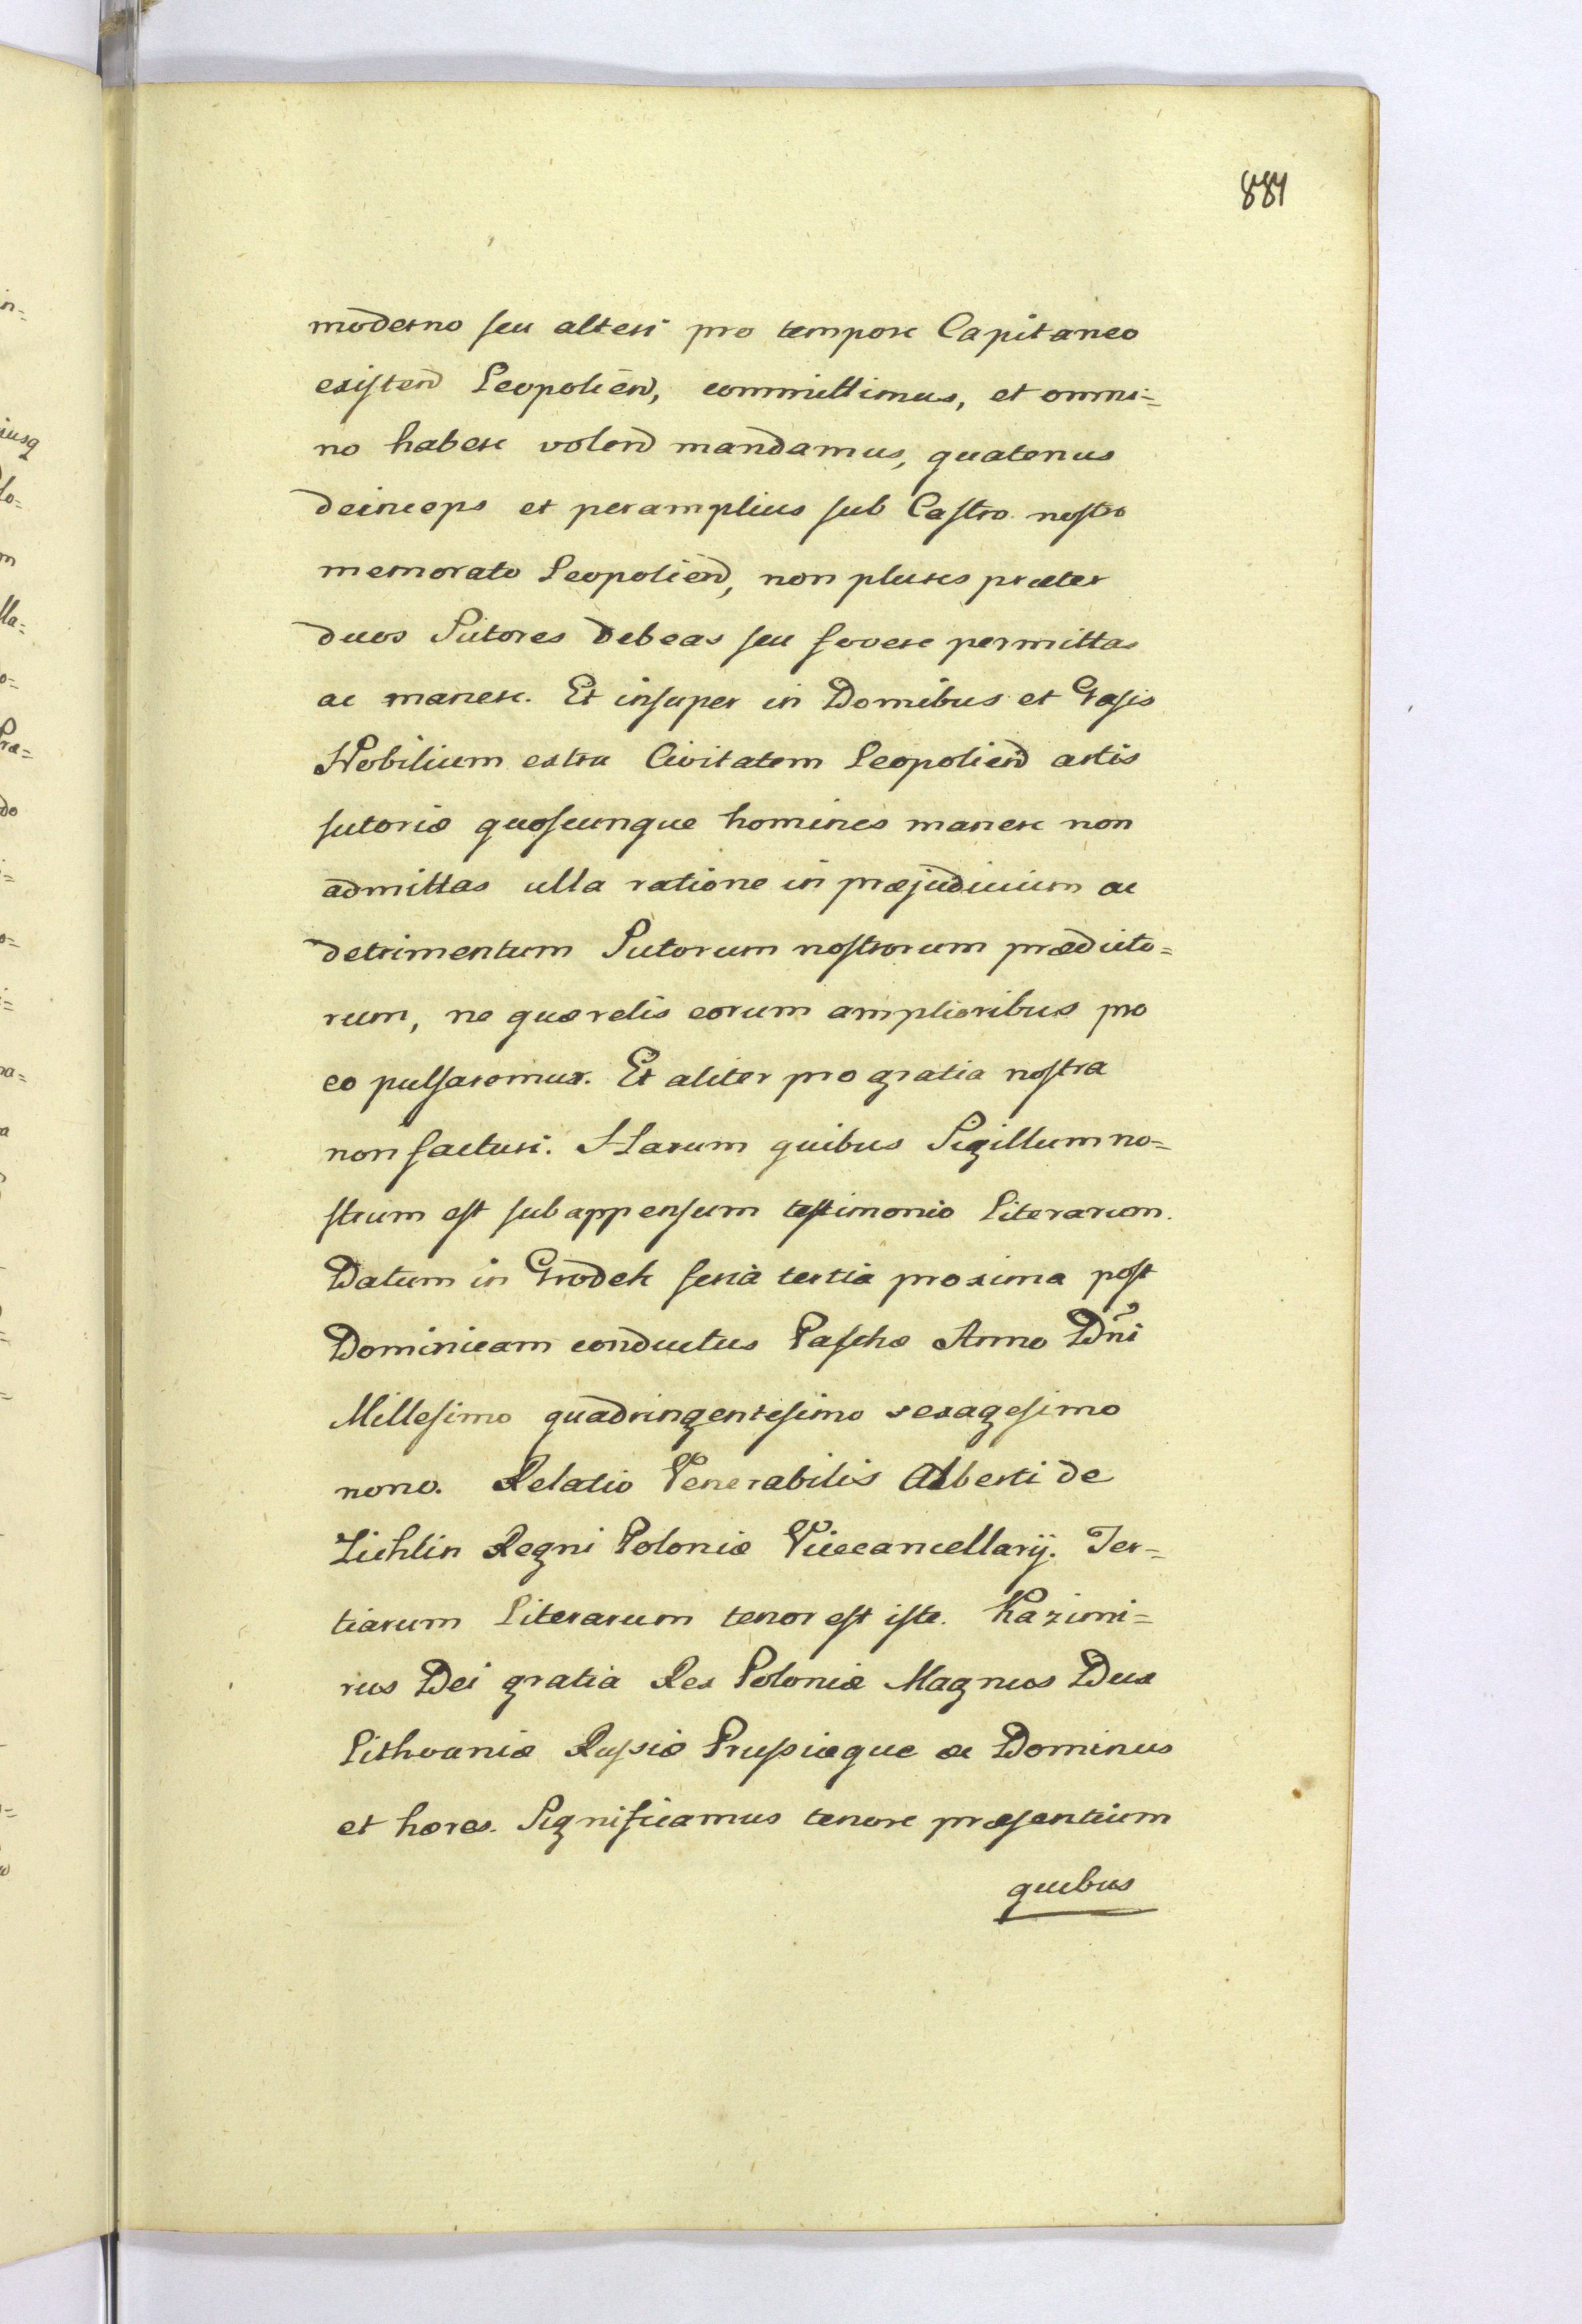 881
moderno seu alteri pro tempore Capitaneo
existen̄d Leopolien̄d, committimus, et omni=
no habere volen̄d mandamus, quatenus
deinceps et peramplius sub Castro nostro
memorato Leopolien̄d, non plures præter
duos Sutores debeas seu fovere permittas
ac manere. Et insuper in Domibus et Grasis
Nobilium extra Civitatem Leopolien̄d artis
sutoriæ quoscunque homines manere non
admittas ulla ratione in præjudicium ac
detrimentum Sutorum nostrorum prædicto=
rum, ne quærelis eorum amplioribus pro
eo pulsaremur. Et aliter pro gratia nostra
non facturi. Harum quibus Sigillum no=
strum est subappensum testimonio Literarum.
Datum in Grodek feriâ tertiâ proxima post
Dominicam conductus Paschæ Anno Dn̄i
Millesimo quadringentesimo sexagesimo
nono. Relatio Venerabilis Alberti de
Zichlin Regni Poloniæ Vicecancellarij. Ter=
tiarum Literarum tenor est iste. Kazimi=
rus Dei gratia Rex Poloniæ Magnus Dux
Lithvaniæ Russiæ Prussiæque ac Dominus
et hæres. Significamus tenore præsentium
quibus